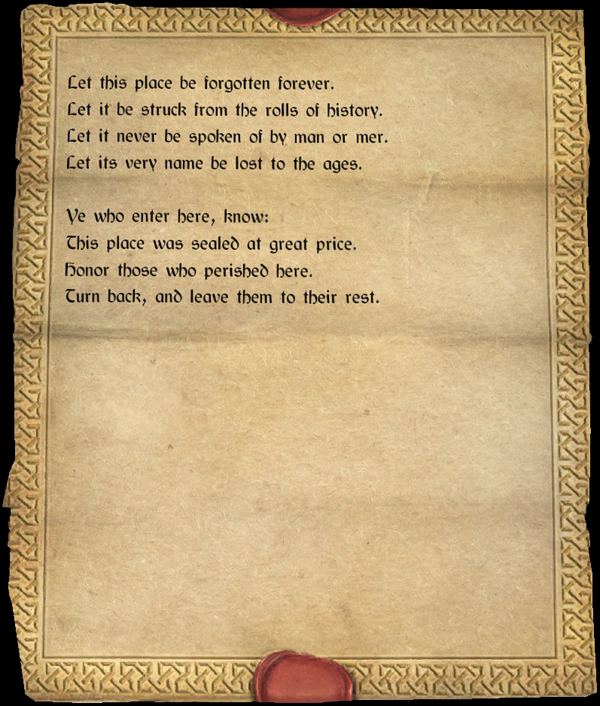 Let this place be forgotten forever.
Let it be struck from the rolls of history.
Let it never be spoken of by man or mer.
Let its very name be lost to the ages.
Ye who enter here, know:
This place was sealed at great price.
Honor those who perished here.
Turn back, and leave them to their rest.